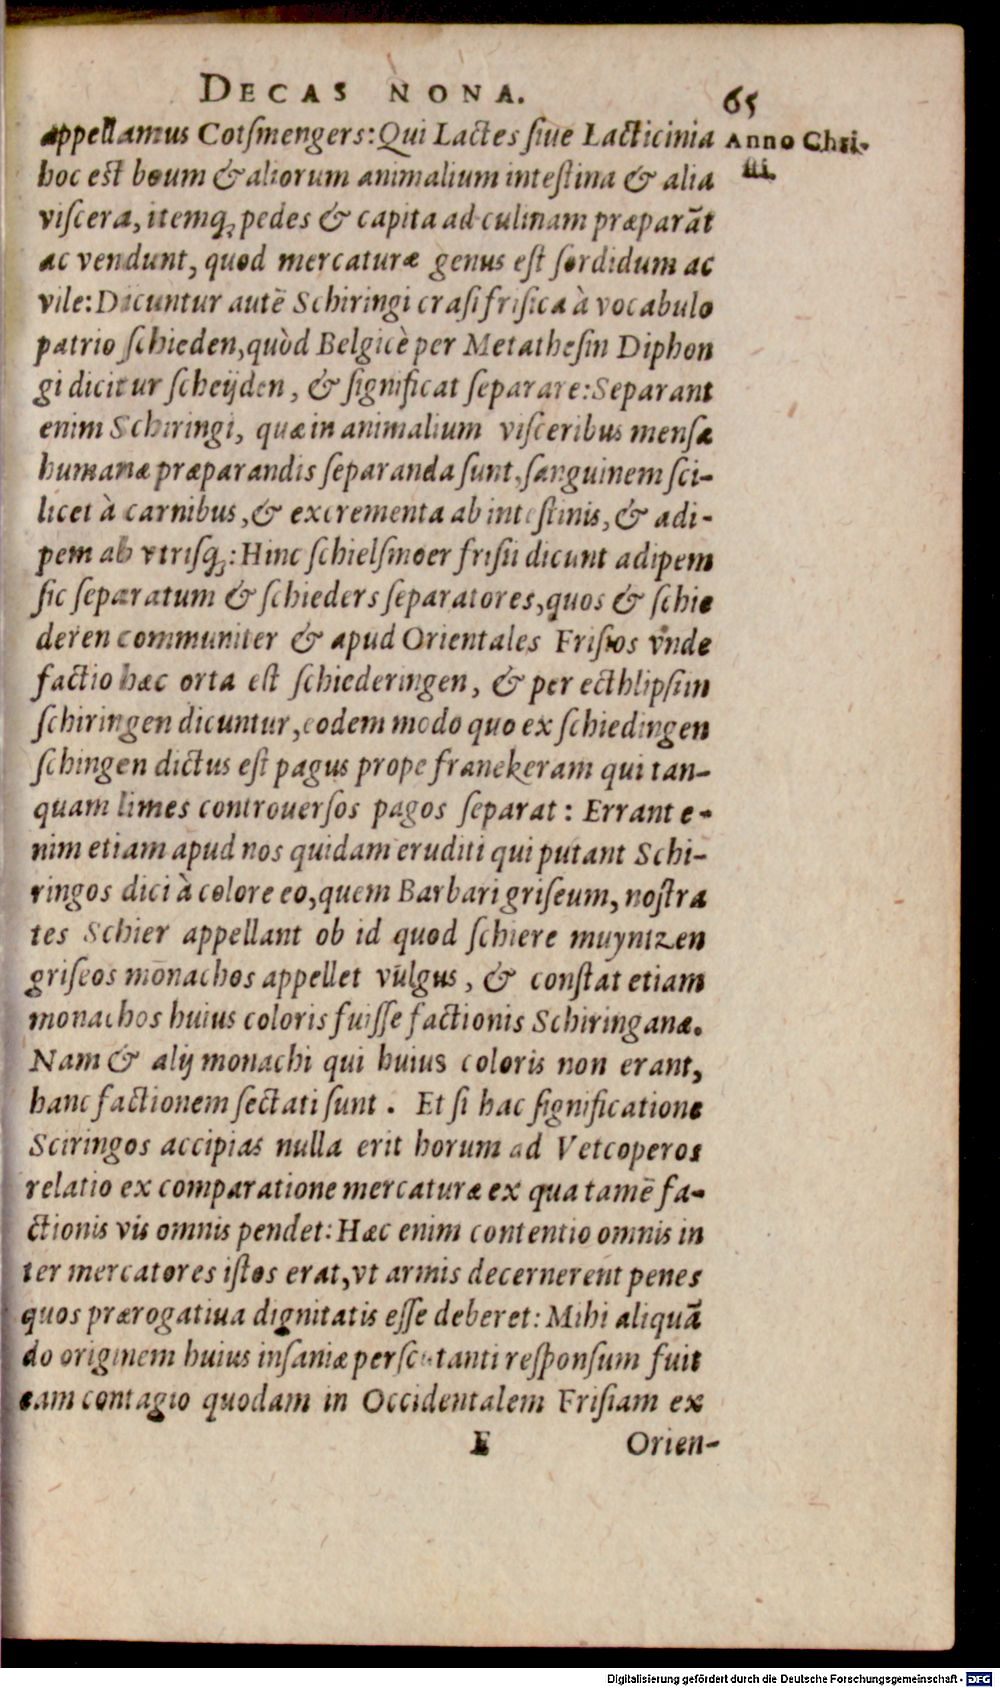 DECAS NONA. 65
appellamus Cotſmengers: Qui Lactes ſiue Lacticinia
Anno Chri-
ſti.
hoc est boum & aliorum animalium inteſtina & alia
viſcera, itemq; pedes & capita ad culinam præparāt
ac vendunt, quod mercaturæ genus eſt ſordidum ac
vile: Dicuntur autē Schiringi craſi friſica à vocabulo
patrio ſchieden, quòd Belgicè per Metatheſin Diphon
gi dicitur ſcheijden, & ſignificat ſeparare: Separant
enim Schiringi, quæ in animalium viſceribus menſæ
humanæ præparandis ſeparanda ſunt, ſanguinem ſci-
licet à carnibus, & excrementa ab inteſtinis, & adi-
pem ab vtriſq;: Hinc ſchielſmoer friſii dicunt adipem
ſic ſeparatum & ſchieders ſeparatores, quos & ſchie
deren communiter & apud Orientales Friſios vnde
factio hæc orta eſt ſchiederingen, & per ecthlipſim
ſchiringen dicuntur, eodem modo quo ex ſchiedingen
ſchingen dictus eſt pagus prope franekeram qui tan-
quam limes controuerſos pagos ſeparat: Errant e-
nim etiam apud nos quidam eruditi qui putant Schi-
ringos dici à colore eo, quem Barbari griſeum, noſtra
tes Schier appellant ob id quod ſchiere muyntzen
griſeos monachos appellet vulgus, & conſtat etiam
monachos huius coloris fuiſſe factionis Schiringanæ.
Nam & alij monachi qui huius coloris non erant,
hanc factionem ſectati ſunt. Et ſi hac ſignificatione
Sciringos accipias nulla erit horum ad Vetcoperos
relatio ex comparatione mercaturæ ex qua tamē fa-
ctionis vis omnis pendet: Hæc enim contentio omnis in
ter mercatores iſtos erat, vt armis decernerent penes
quos prærogatiua dignitatis eſſe deberet: Mihi aliquā
do originem huius inſaniæ perſcrutanti reſponſum fuit
eam contagio quodam in Occidentalem Friſiam ex
E Orien-
Digitalisierung gefördert durch die Deutsche Forschungsgemeinschaft - DFG